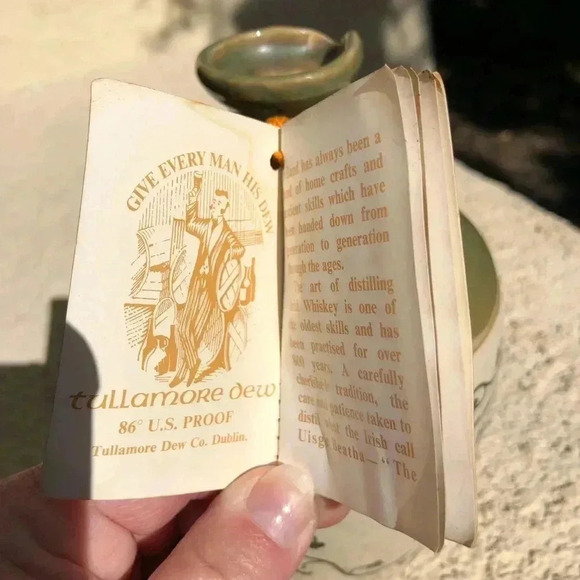 GIVE EVERY MAN HIS DEW
tullamore dew
86° U.S. PROOF
Tullamore Dew Co. Dublin.
has always been a
of home crafts and
skills which have
been handed down from
to generation
the ages.
The art of distilling
Whiskey is one of
the oldest skills and has
been practised for over
years. A carefully
tradition, the
care and patience taken to
the Irish call
Uisge Beatha—"The